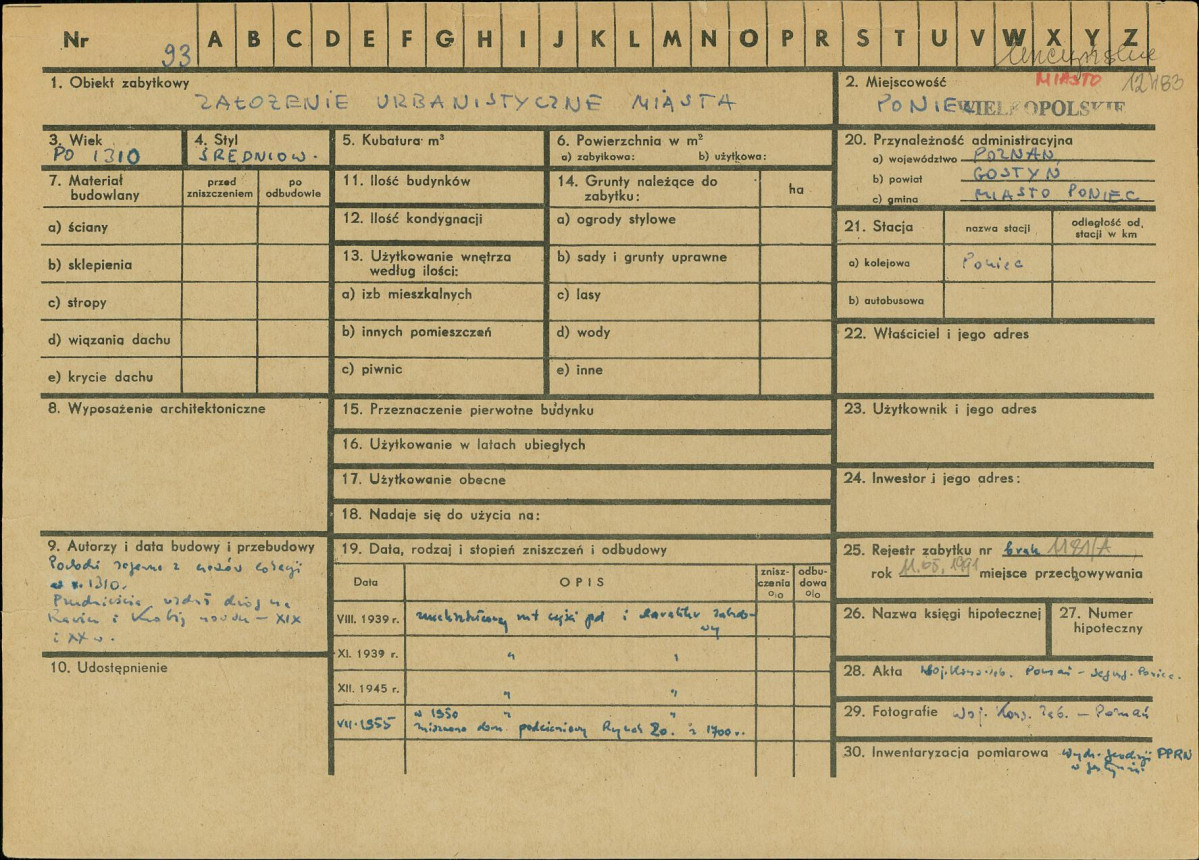 Nr 93 A B C D E F G H I J K L M N O P R S T U V W X Y Z
1. Obiekt zabytkowy
ZAŁOŻENIE URBANISTYCZNE MIASTA
2. Miejscowość
MIASTO
PONIEC
WIELKOPOLSKIE
3. Wiek
PO 1310
4. Styl
ŚREDNIOW.
5. Kubatura m³
6. Powierzchnia w m²
a) zabytkowa: b) użytkowa:
7. Materiał budowlany
przed zniszczeniem
po odbudowie
a) ściany
b) sklepienia
c) stropy
d) wiązania dachu
e) krycie dachu
8. Wyposażenie architektoniczne
9. Autorzy i data budowy i przebudowy
w r. 1310.
i XX w.
10. Udostępnienie
11. Ilość budynków
12. Ilość kondygnacji
13. Użytkowanie wnętrza według ilości:
a) izb mieszkalnych
b) innych pomieszczeń
c) piwnic
14. Grunty należące do zabytku:
ha
a) ogrody stylowe
b) sady i grunty uprawne
c) lasy
d) wody
e) inne
15. Przeznaczenie pierwotne budynku
16. Użytkowanie w latach ubiegłych
17. Użytkowanie obecne
18. Nadaje się do użycia na:
19. Data, rodzaj i stopień zniszczeń i odbudowy
Data
OPIS
zniszczenia %
odbudowa %
VIII. 1939 r.
XI. 1939 r. " "
XII. 1945 r. " "
VII. 1955
w 1950 " "
zniszczono dom podcieniowy Rynek 20. z 1700 r.
20. Przynależność administracyjna
a) województwo POZNAŃ
b) powiat GOSTYŃ
c) gmina MIASTO PONIEC
21. Stacja
nazwa stacji
odległość od stacji w km
a) kolejowa Poniec
b) autobusowa
22. Właściciel i jego adres
23. Użytkownik i jego adres
24. Inwestor i jego adres:
25. Rejestr zabytku nr brak 1181/A
rok 11.05.1991 miejsce przechowywania
26. Nazwa księgi hipotecznej
27. Numer hipoteczny
28. Akta Woj. Kons. Zab. Poznań
29. Fotografie Woj. Kons. Zab. – Poznań
30. Inwentaryzacja pomiarowa
PPRN